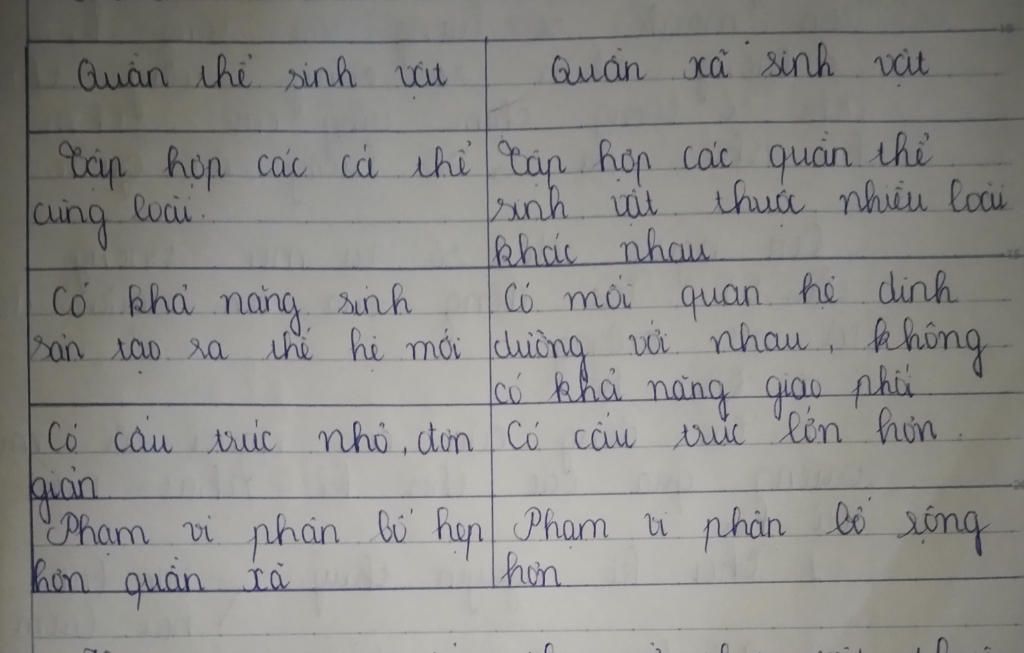 Quần thể sinh vật
Quần xã sinh vật
Tập hợp các cá thể
cùng loài.
Tập hợp các quần thể
sinh vật thuộc nhiều loài
khác nhau
Có khả năng sinh
sản tạo ra thế hệ mới
Có mối quan hệ dinh
dưỡng với nhau, không
có khả năng giao phối
Có cấu trúc nhỏ, đơn
giản
Có cấu trúc lớn hơn.
Phạm vi phân bố hẹp
hơn quần xã
Phạm vi phân bố rộng
hơn